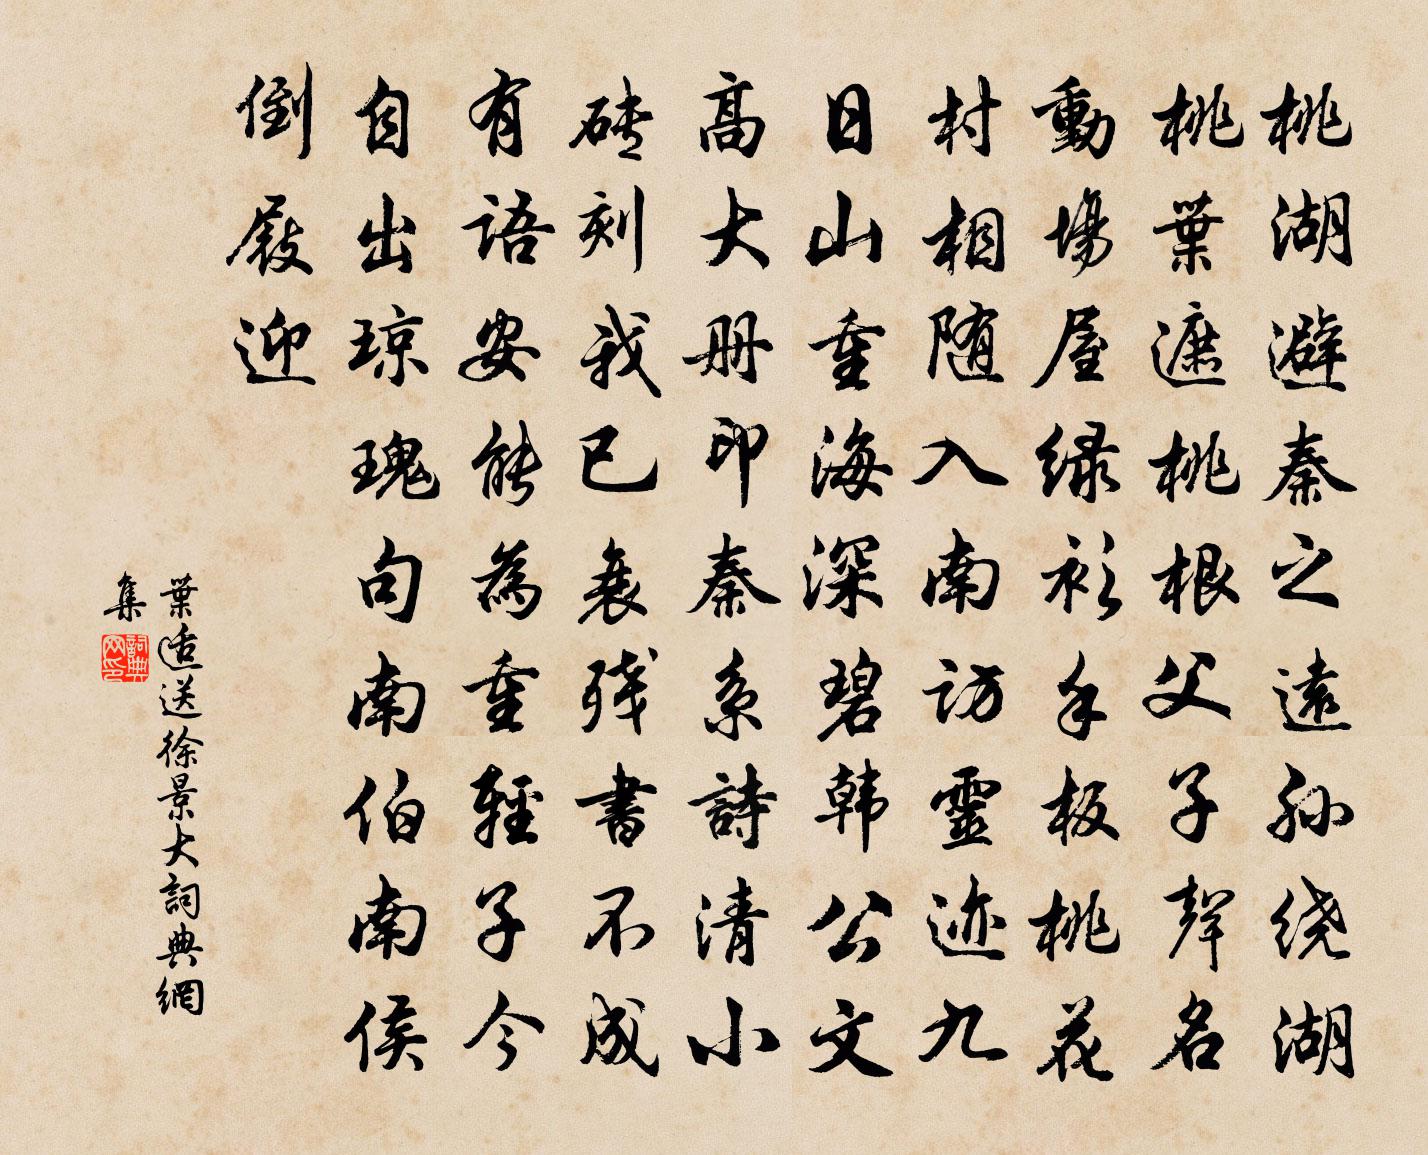 桃湖避秦之遠孙绕湖
桃葉遮桃根父子聲名
動場屋绿衫手板桃花
村相随入南訪靈迹九
日山重海深碧韩公文
高大册印秦系詩清小
磚刻我已衰残書不成
有語安能為重輕子今
自出琼瑰句南伯南侯
倒屐迎
葉适送徐景大詞典網
集
詞典
网